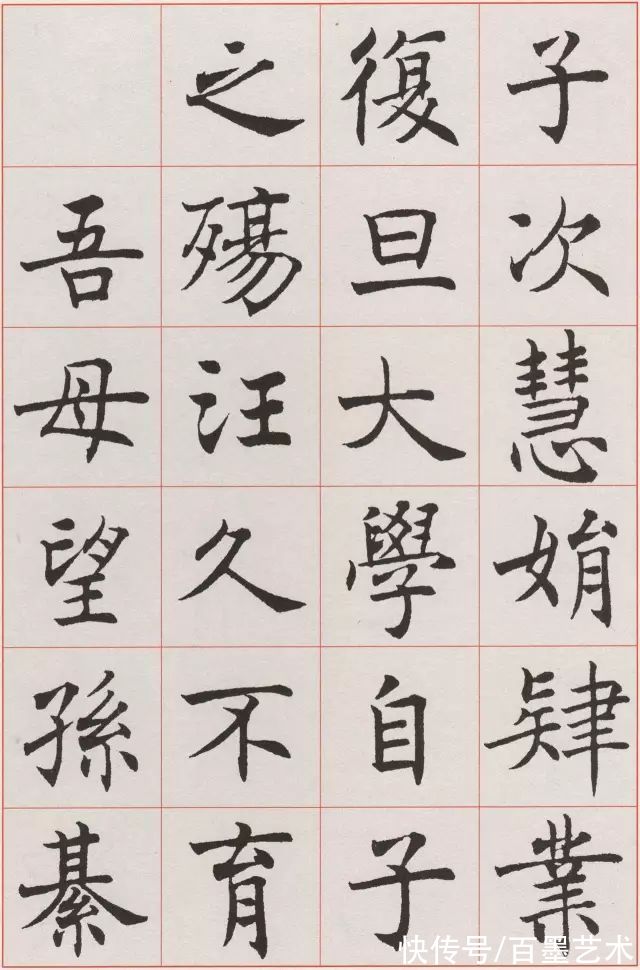 子次慧娟肄業
復旦大學自子
之殤汪久不育
吾母望孫綦
快传号/百墨艺术